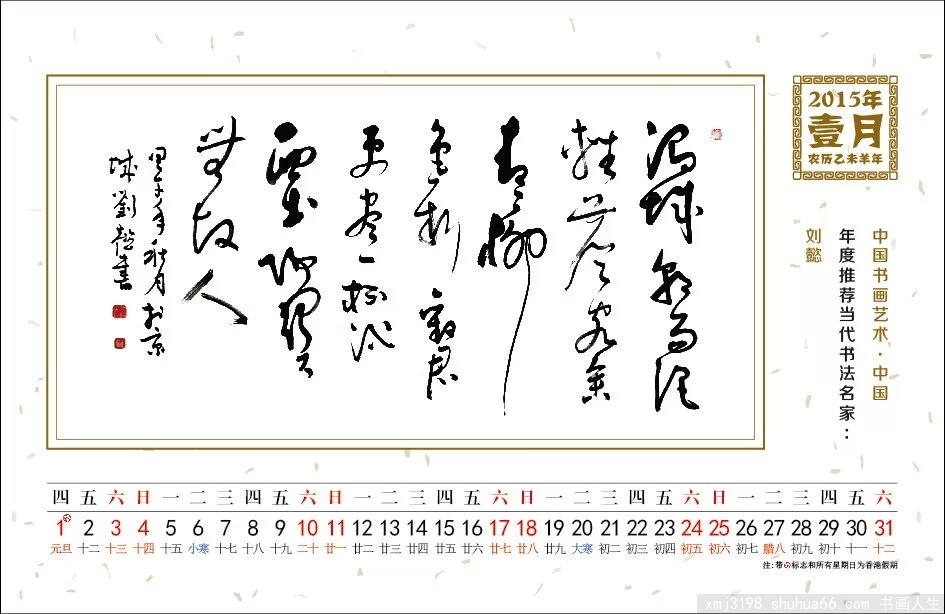 2015年
壹月
农历乙未羊年
中国书画艺术·中国
年度推荐当代书法名家：
刘懿
渭城朝雨浥
輕塵客舍
青々柳
色新勸君
更盡一杯酒
西出陽關
無故人
甲午年秋月於京
城劉懿書
四 五 六 日 一 二 三 四 五 六 日 一 二 三 四 五 六 日 一 二 三 四 五 六 日 一 二 三 四 五 六
1 2 3 4 5 6 7 8 9 10 11 12 13 14 15 16 17 18 19 20 21 22 23 24 25 26 27 28 29 30 31
元旦 十二 十三 十四 十五 小寒 十七 十八 十九 二十 廿一 廿二 廿三 廿四 廿五 廿六 廿七 廿八 廿九 大寒 初二 初三 初四 初五 初六 初七 腊八 初九 初十 十一 十二
注:带标志和所有星期日为香港假期
xmj3198.shuhua66.com 书画人生